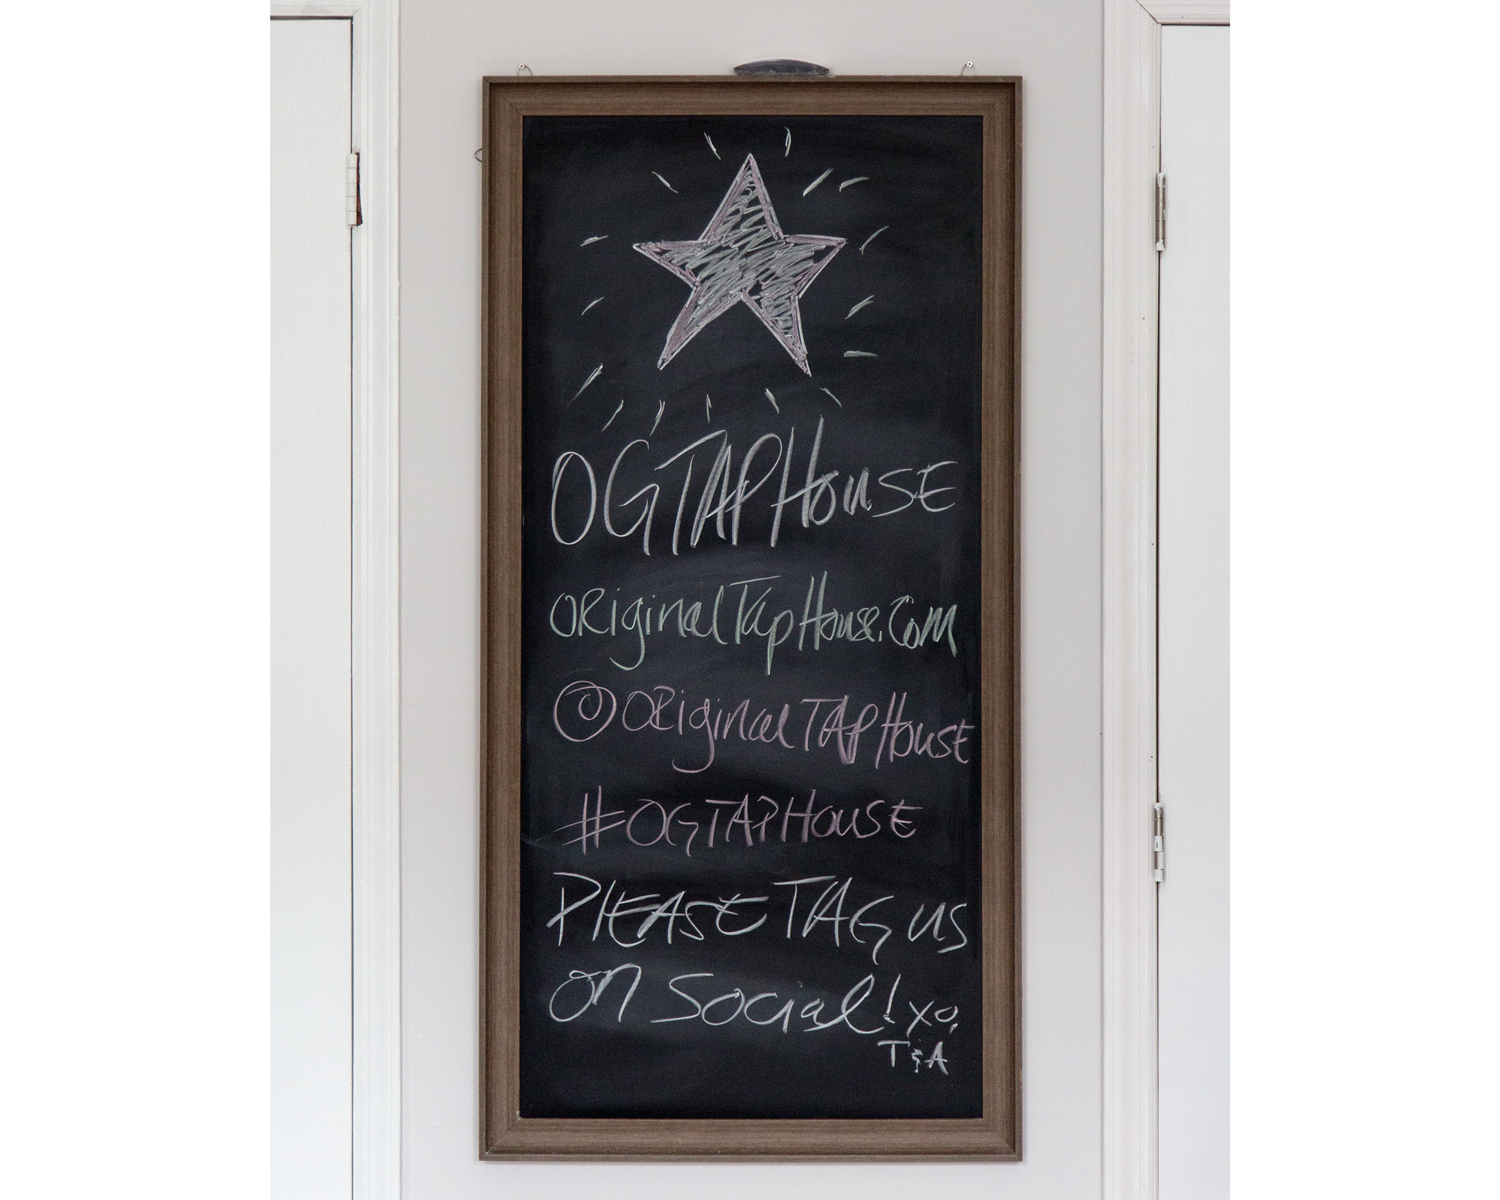 OGTAPHouse
ORiginalTapHouse.Com
@ORiginalTAPHousE
#OGTAPHousE
PlEASE TAG us
on Social! xo,
T&A